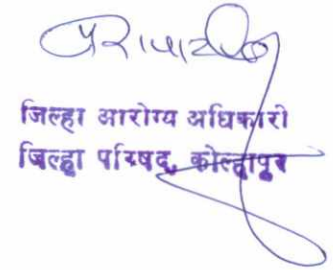 जिल्हा आरोग्य अधिकारी
जिल्हा परिषद, कोल्हापूर